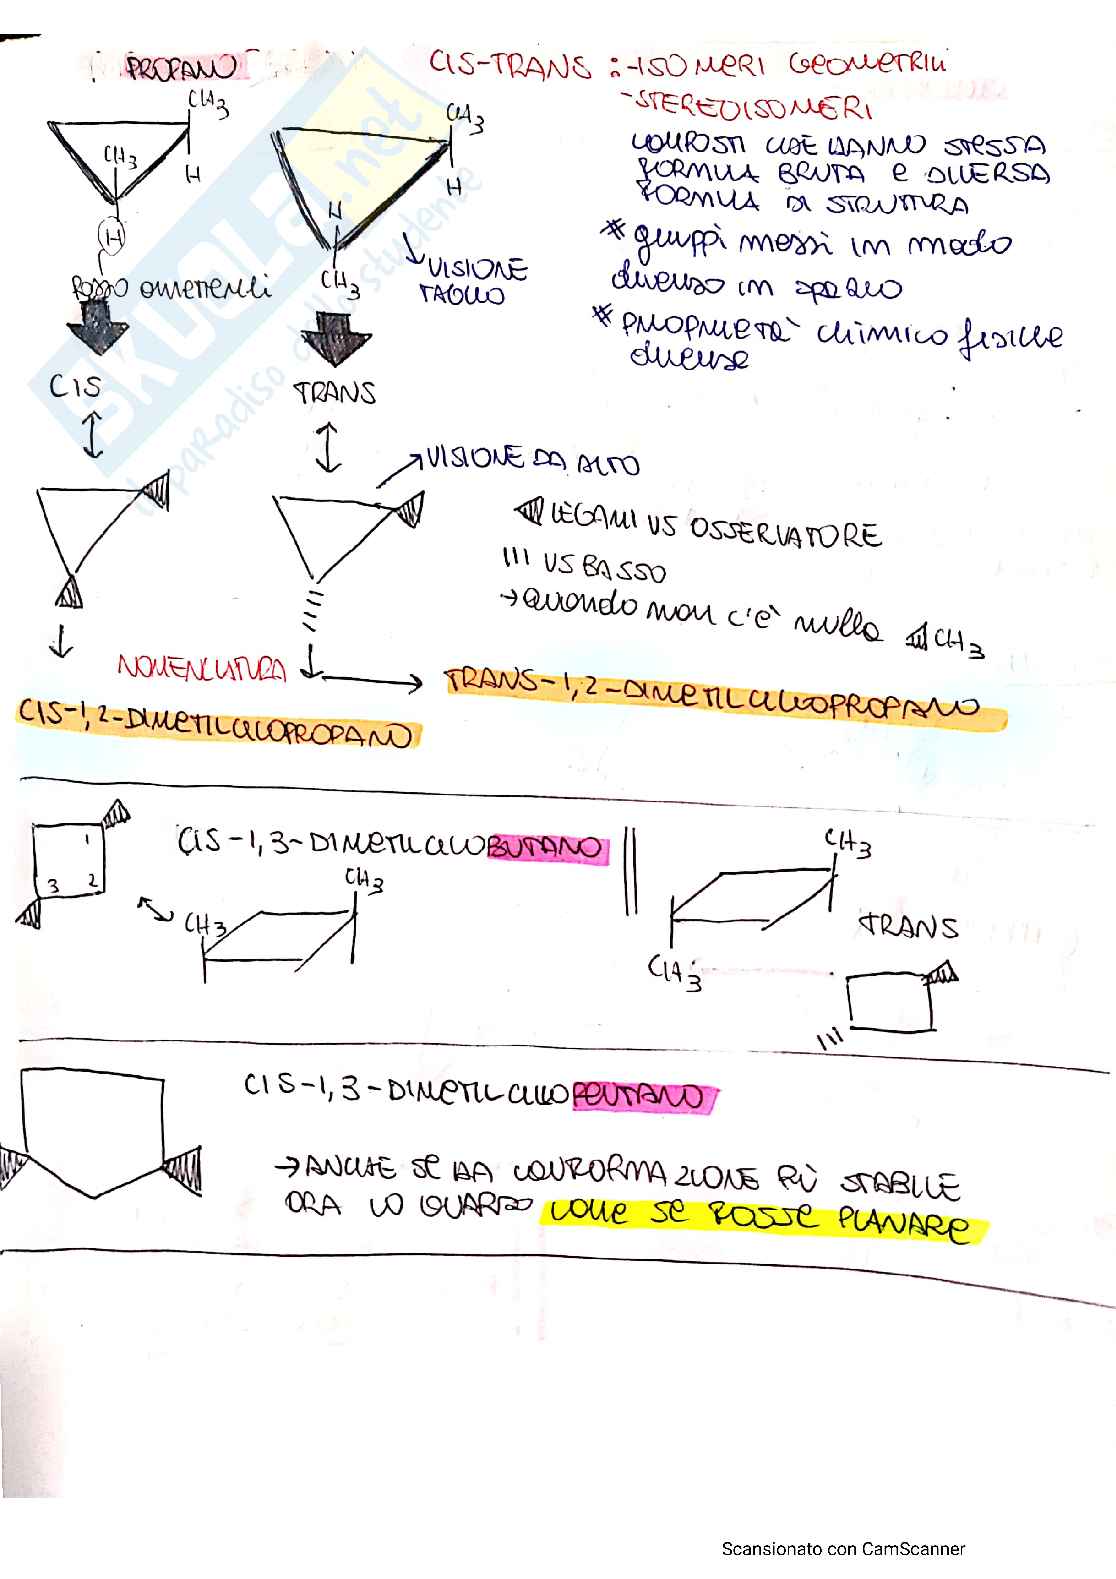 PROPANO
CIS-TRANS : -ISOMERI GEOMETRICI
-STEREOISOMERI
COMPOSTI CHE HANNO STESSA
FORMULA BRUTA e DIVERSA
FORMULA DI STRUTTURA
* gruppi messi in modo
diverso in spazio
* proprietà chimico fisiche
diverse
CH3
CH3
H
H
CH3
H
H
CH3
VISIONE
TAGLIO
Posso ometterli
SKUOLA.net
il paradiso dello studente
CIS
TRANS
VISIONE DA ALTO
LEGAMI VS OSSERVATORE
III VS BASSO
→ quando non c'è nulla CH3
NOMENCLATURA
TRANS-1,2-DIMETILCICLOPROPANO
CIS-1,2-DIMETILCICLOPROPANO
1
3 2
CIS-1,3-DIMETILCICLOBUTANO
CH3
CH3
CH3
CH3
TRANS
CIS-1,3-DIMETILCICLOPENTANO
→ ANCHE SE HA CONFORMAZIONE PIÙ STABILE
ORA LO GUARDO COME SE FOSSE PLANARE
Scansionato con CamScanner